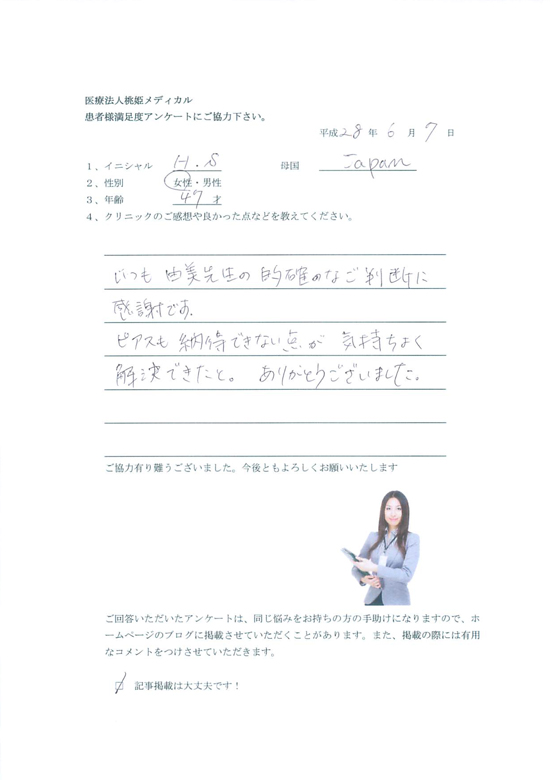 医療法人桃姫メディカル
患者様満足度アンケートにご協力下さい。
平成28年 6 月 7 日
1、イニシャル H.S 母国 Japan
2、性別 女性・男性
3、年齢 47才
4、クリニックのご感想や良かった点などを教えてください。
いつも 由美先生の 的確のなご判断に
感謝です.
ピアスも 納得できない点が 気持ちよく
解決できたと。 ありがとうございました。
ご協力有り難うございました。今後ともよろしくお願いいたします
ご回答いただいたアンケートは、同じ悩みをお持ちの方の手助けになりますので、ホ
ームページのブログに掲載させていただくことがあります。また、掲載の際には有用
なコメントをつけさせていただきます。
記事掲載は大丈夫です！